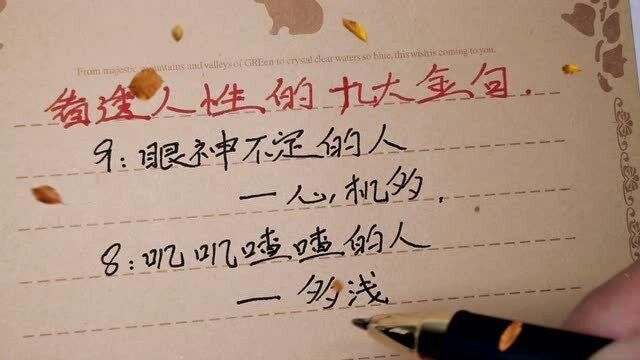 From majestic mountains and valleys of GREen to crystal clear waters so blue, this wish is coming to you.
看透人性的九大金句.
9:眼神不定的人
一心机多.
8:叽叽喳喳的人
一多浅